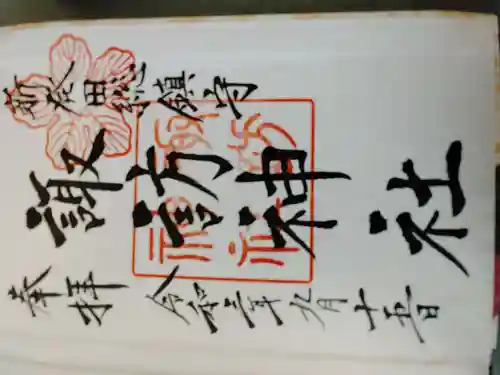 新発田総鎮守
諏訪神社
奉拝
令和三年九月十五日